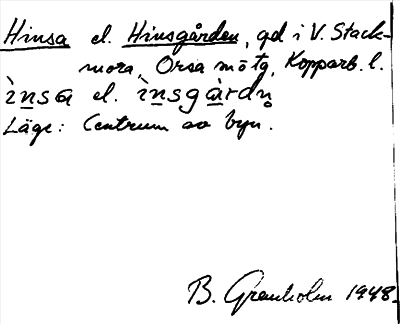 Hinsa el. Hinsgården, gd i V. Stack-
mora, Orsa m ö tg, Kopparb. l.
ìnsa el. ìnsgàrdn̥
Läge: Centrum av byn.
B. Grenholm 1948.